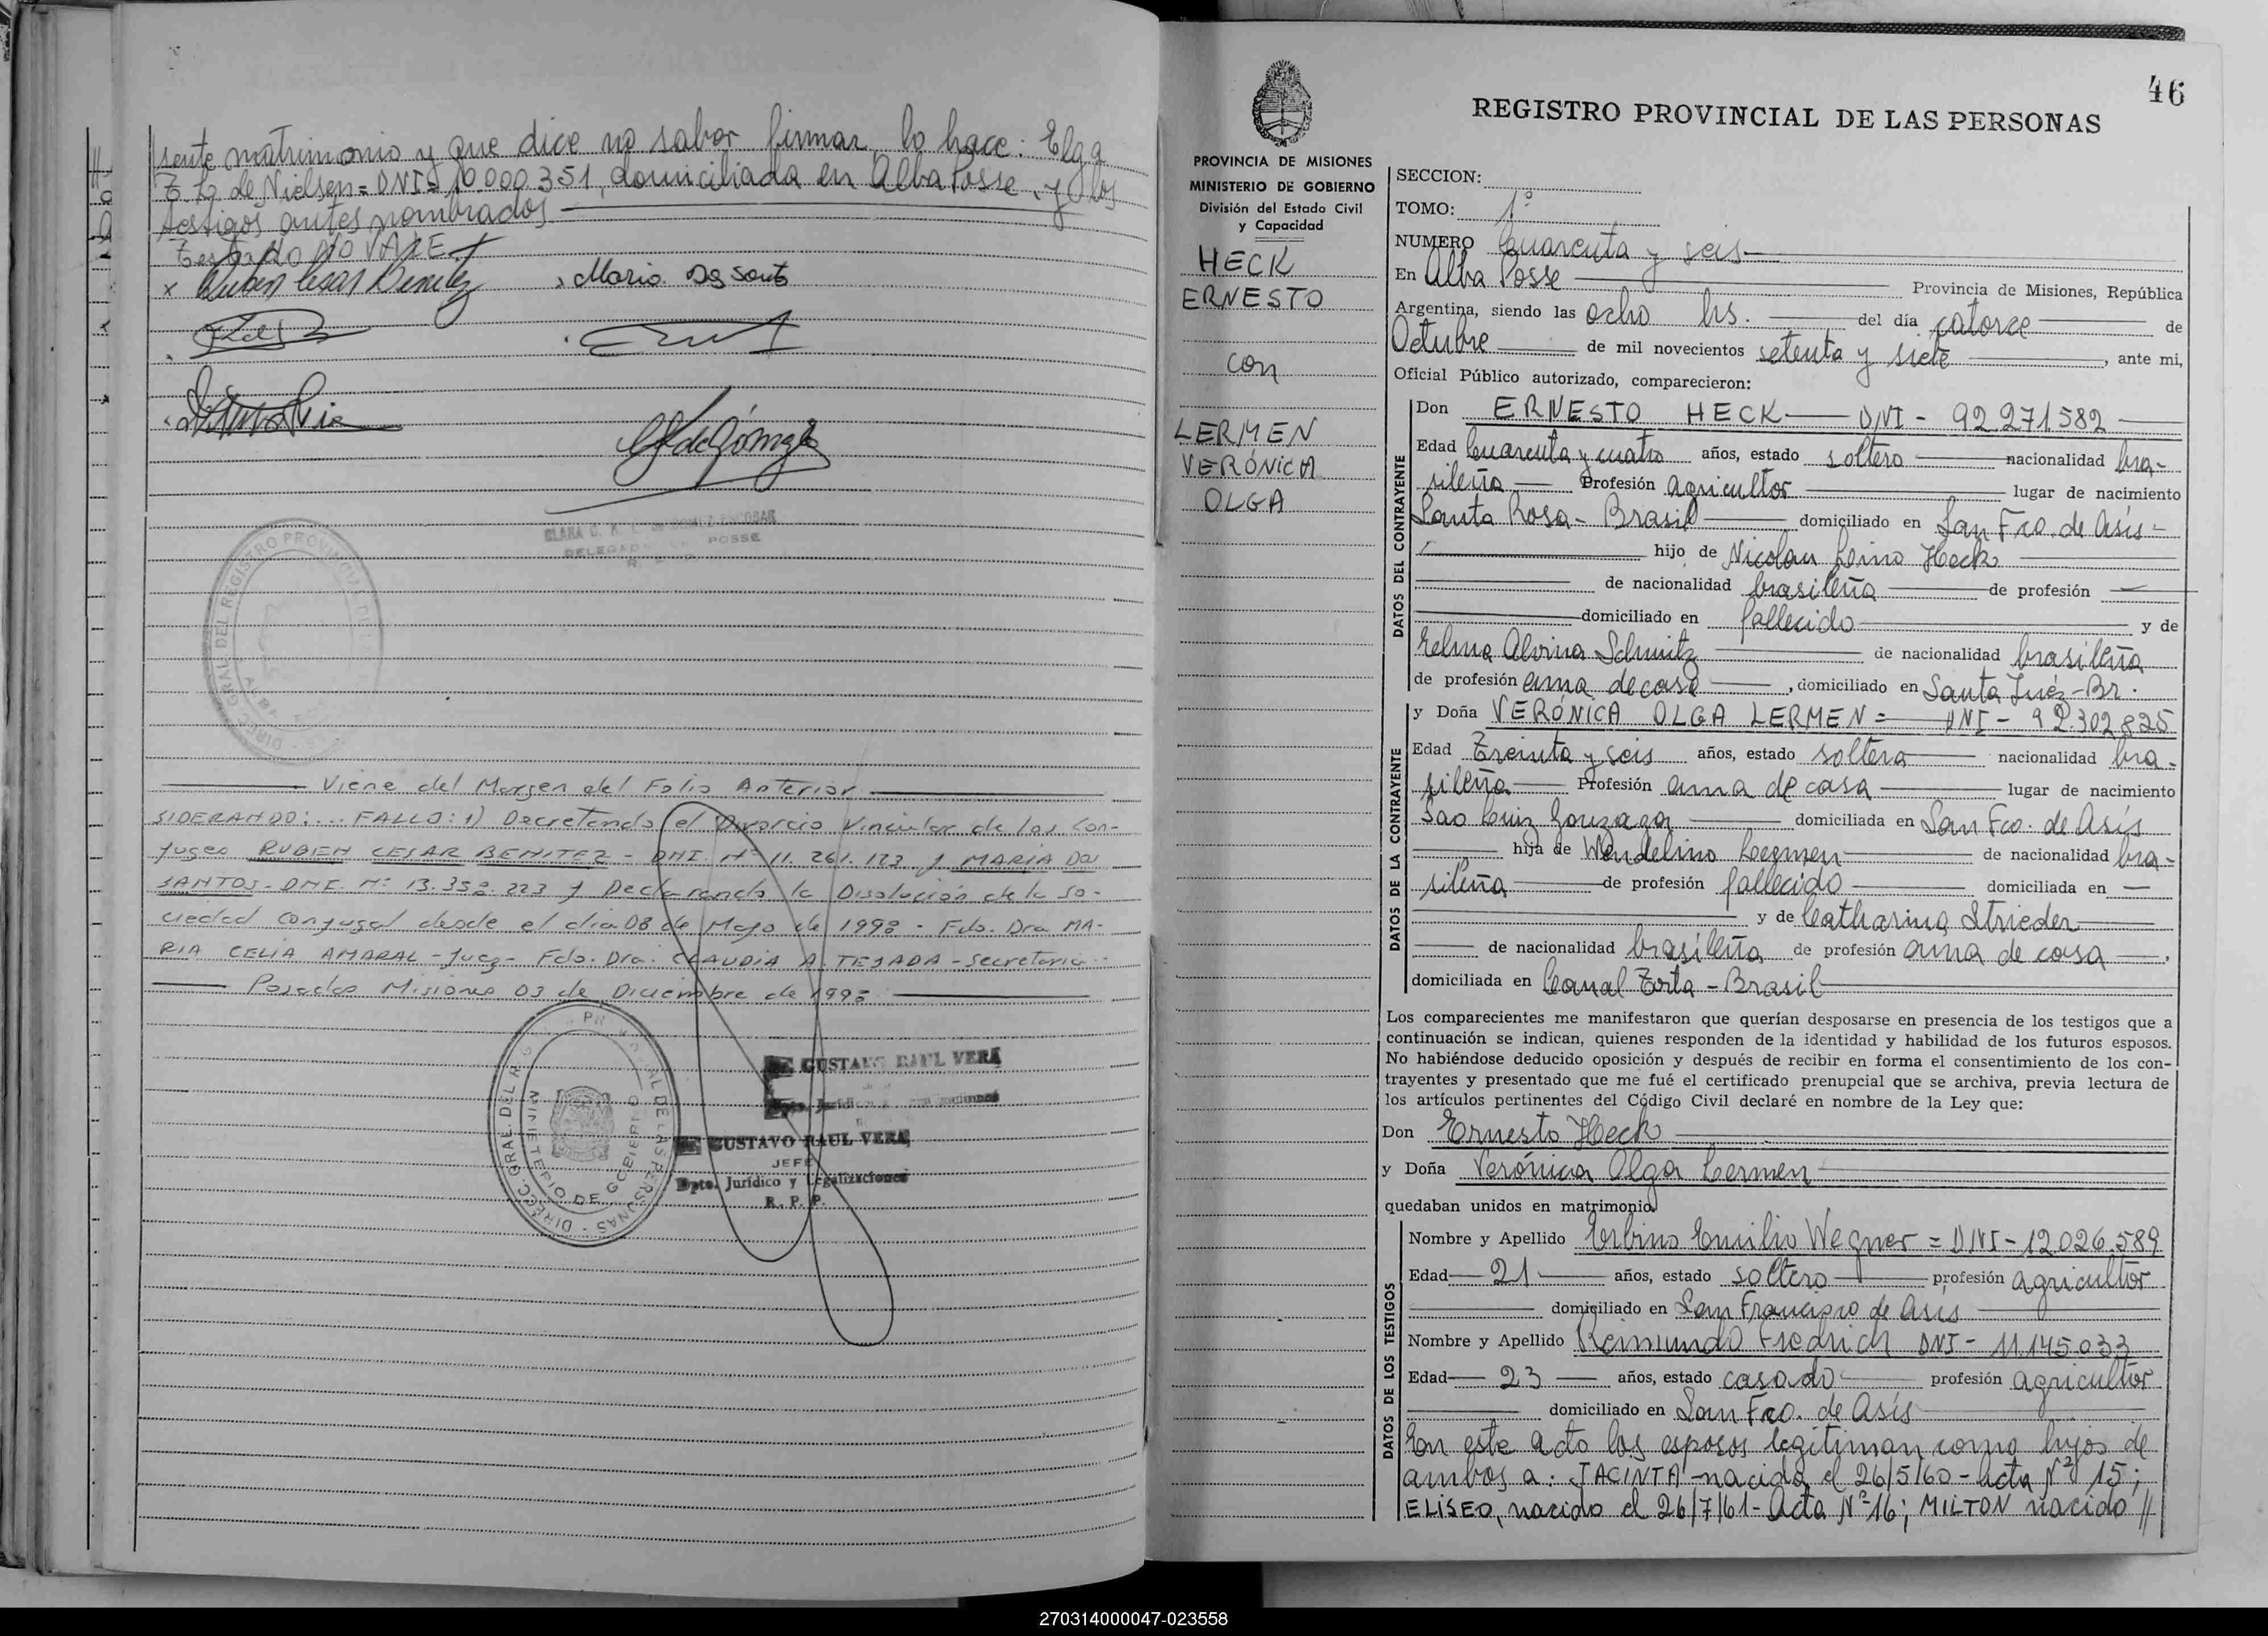 sente matrimonio y que dice no saber firmar, lo hace: Elga
Z. L. de Nielsen = DNI = 10.000.351, domiciliada en Alba Posse, y los
testigos antes nombrados
Testado NO VALE.
x Ruben Cesar Benitez
Mario Ds Sants
CLARA D. M. L. de GOMEZ ESCOBAR
DELEGADA POSSE
DIREC. GRAL. DEL REGISTRO PROVINCIAL DE LAS
Viene del Margen del Folio Anterior
SIDERANDO:... FALLO: 1) Decretando el Divorcio Vincular de los Con-
yuges RUBEN CESAR BENITEZ - DNI. Nº 11.261.123 y MARIA Dos
SANTOS - DNI. Nº: 13.352.223 y Declarando la Disolución de la So-
ciedad Conyugal desde el dia 08 de Mayo de 1998 - Fdo. Dra. MA-
RIA CELIA AMARAL - Juez - Fdo. Dra. CLAUDIA A. TEJADA - Secretaria -
Posadas Misiones 03 de Diciembre de 1998
DIREC. GRAL. DEL REG. PROVINCIAL DE LAS PERSONAS
MINISTERIO DE GOBIERNO
Dr. GUSTAVO RAUL VERA
Dr. GUSTAVO RAUL VERA
JEFE
Dpto. Jurídico y Legalizaciones
R. P. P.
46
REGISTRO PROVINCIAL DE LAS PERSONAS
PROVINCIA DE MISIONES
MINISTERIO DE GOBIERNO
División del Estado Civil
y Capacidad
HECK
ERNESTO
con
LERMEN
VERÓNICA
OLGA
SECCION:
TOMO: 1º
NUMERO Cuarenta y seis
En Alba Posse Provincia de Misiones, República
Argentina, siendo las ocho hs. del día catorce de
Octubre de mil novecientos setenta y siete, ante mi,
Oficial Público autorizado, comparecieron:
DATOS DEL CONTRAYENTE
Don ERNESTO HECK DNI - 92.271582
Edad Cuarenta y cuatro años, estado soltero nacionalidad bra-
sileña Profesión agricultor lugar de nacimiento
Santa Rosa - Brasil domiciliado en San Fco. de Asís -
hijo de Nicolau Leino Heck
de nacionalidad brasileña de profesión
domiciliado en fallecido y de
Elma Alvina Schmitz de nacionalidad brasileña
de profesión ama de casa, domiciliado en Santa Inéz - Br.
DATOS DE LA CONTRAYENTE
y Doña VERÓNICA OLGA LERMEN = DNI - 92.302.825
Edad Treinta y seis años, estado soltera nacionalidad bra-
sileña Profesión ama de casa lugar de nacimiento
Sao Luiz Gonzaga domiciliada en San Fco. de Asís
hija de Wendelino Lermen de nacionalidad bra-
sileña de profesión fallecido domiciliada en
y de Catharina Strieder
de nacionalidad brasileña de profesión ama de casa,
domiciliada en Canal Torta - Brasil
Los comparecientes me manifestaron que querían desposarse en presencia de los testigos que a
continuación se indican, quienes responden de la identidad y habilidad de los futuros esposos.
No habiéndose deducido oposición y después de recibir en forma el consentimiento de los con-
trayentes y presentado que me fué el certificado prenupcial que se archiva, previa lectura de
los artículos pertinentes del Código Civil declaré en nombre de la Ley que:
Don Ernesto Heck
y Doña Verónica Olga Lermen
quedaban unidos en matrimonio.
DATOS DE LOS TESTIGOS
Nombre y Apellido Erbino Emilio Wegner = DNI - 12.026.589
Edad 21 años, estado soltero profesión agricultor
domiciliado en San Francisco de Asís
Nombre y Apellido Reimundo Fredrich DNI - 11.145.033
Edad 23 años, estado casado profesión agricultor
domiciliado en San Fco. de Asís
En este acto los esposos legitiman como hijos de
ambos a: JACINTA nacida el 26/5/60 - Acta Nº 15;
ELISEO, nacido el 26/7/61 - Acta Nº 16; MILTON nacido //
270314000047-023558